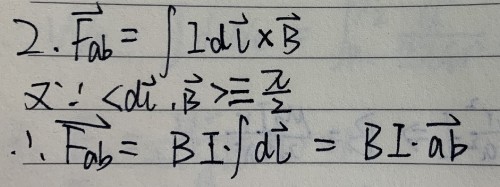 2. $\vec{F_{ab}} = \int I \cdot d\vec{l} \times \vec{B}$
又∵ $<d\vec{l}, \vec{B}> \equiv \frac{\pi}{2}$
∴ $\vec{F_{ab}} = BI \cdot \int d\vec{l} = BI \cdot \vec{ab}$